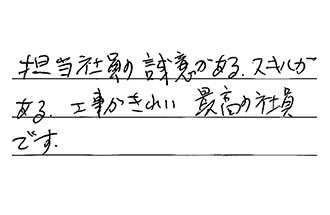 担当社員の誠意がある. スキルが
ある. 工事がきれい 最高の社員
です.